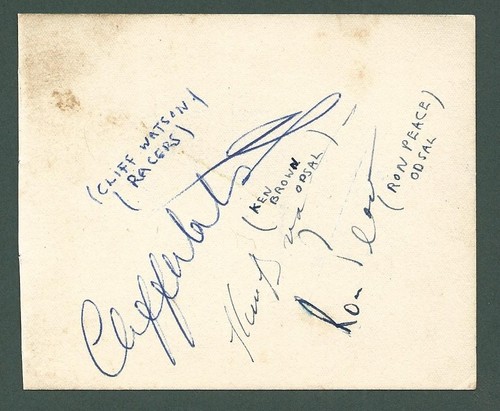 (CLIFF WATSON)
(RACERS)
Cliff Watson
(KEN
BROWN
ODSAL)
(RON PEACE)
ODSAL
Ron Peace